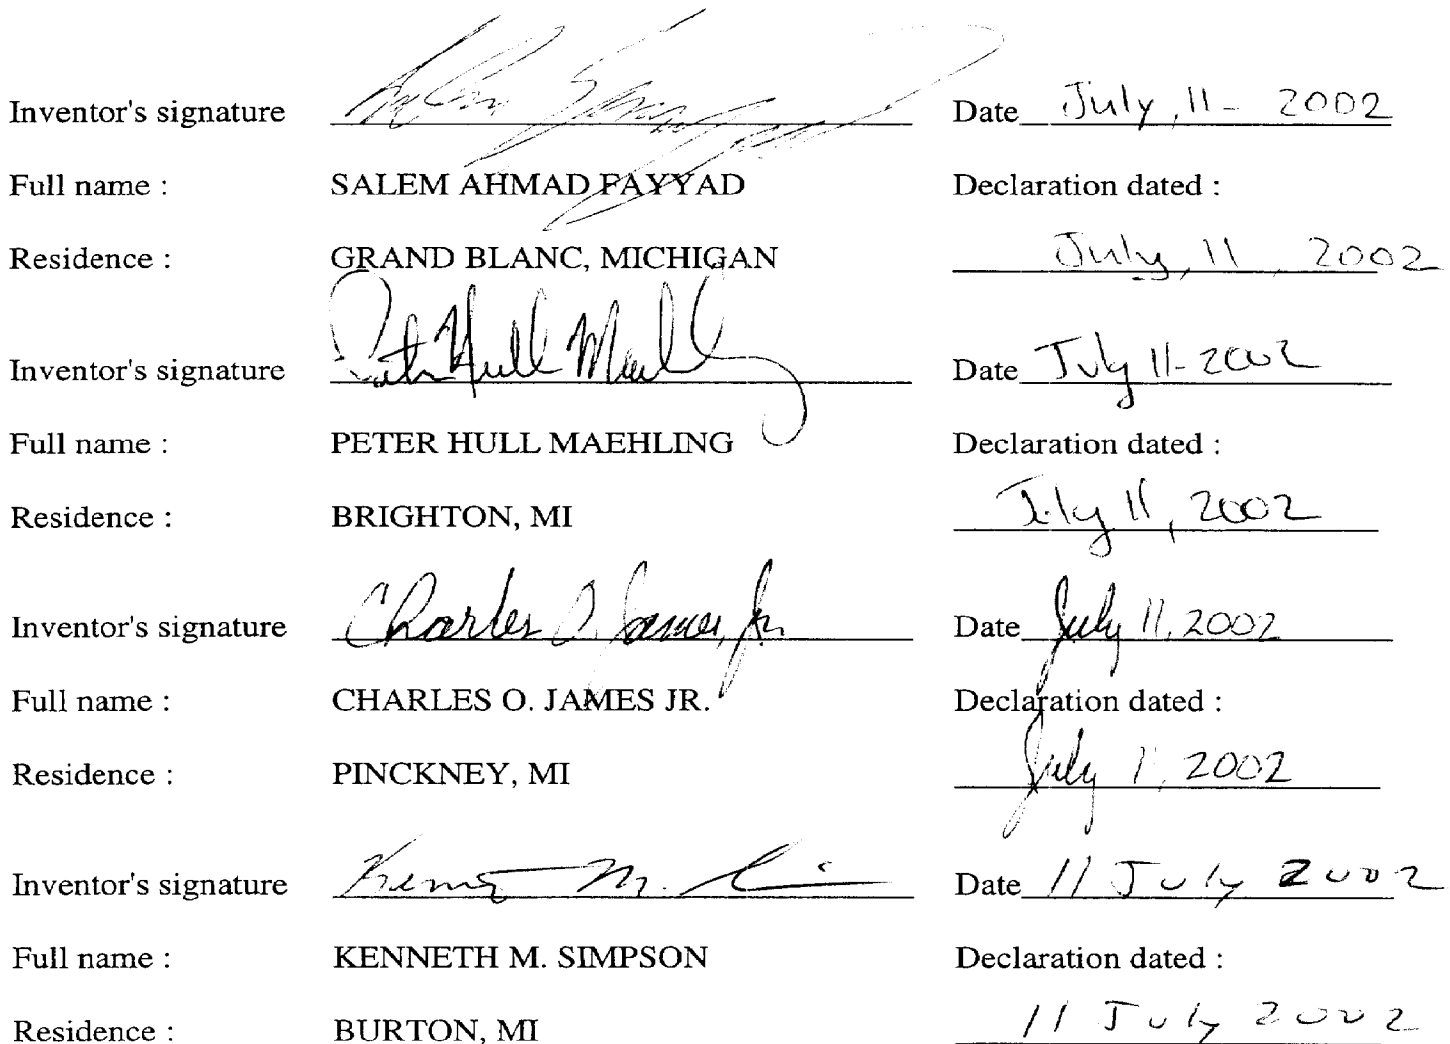 Inventor's signature Date July, 11- 2002
Full name : SALEM AHMAD FAYYAD Declaration dated :
Residence : GRAND BLANC, MICHIGAN July, 11, 2002
Inventor's signature Peter Hull Maehling Date July 11-2002
Full name : PETER HULL MAEHLING Declaration dated :
Residence : BRIGHTON, MI July 11, 2002
Inventor's signature Charles O. James, Jr. Date July 11, 2002
Full name : CHARLES O. JAMES JR. Declaration dated :
Residence : PINCKNEY, MI July 11, 2002
Inventor's signature Date 11 July 2002
Full name : KENNETH M. SIMPSON Declaration dated :
Residence : BURTON, MI 11 July 2002